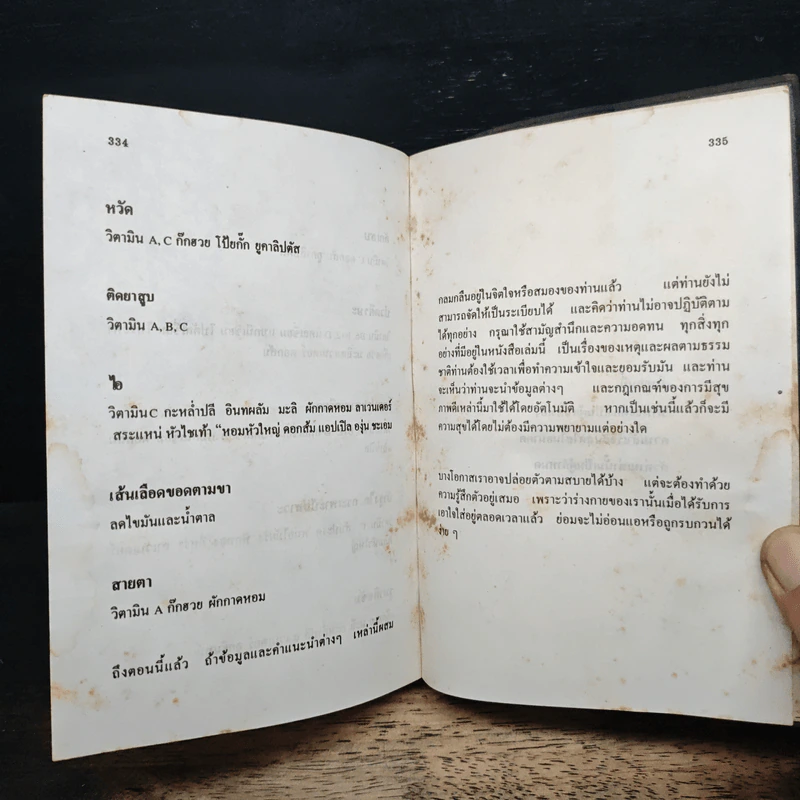 334
หวัด
วิตามิน A, C กิ๊กฮวย โป้ยกั๊ก ยูคาลิปตัส
ติดยาสูบ
วิตามิน A, B, C
ไอ
วิตามิน C กะหล่ำปลี อินทผลัม มะลิ ผักกาดหอม ลาเวนเดอร์
สระแหน่ หัวไชเท้า "หอมหัวใหญ่ ดอกส้ม แอปเปิล องุ่น ชะเอม
เส้นเลือดขอดตามขา
ลดไขมันและน้ำตาล
สายตา
วิตามิน A กิ๊กฮวย ผักกาดหอม
ถึงตอนนี้แล้ว ถ้าข้อมูลและคำแนะนำต่างๆ เหล่านี้ผสม
335
กลมกลืนอยู่ในจิตใจหรือสมองของท่านแล้ว แต่ท่านยังไม่
สามารถจัดให้เป็นระเบียบได้ และคิดว่าท่านไม่อาจปฏิบัติตาม
ได้ทุกอย่าง กรุณาใช้สามัญสำนึกและความอดทน ทุกสิ่งทุก
อย่างที่มีอยู่ในหนังสือเล่มนี้ เป็นเรื่องของเหตุและผลตามธรรม
ชาติท่านต้องใช้เวลาเพื่อทำความเข้าใจและยอมรับมัน และท่าน
จะเห็นว่าท่านจะนำข้อมูลต่างๆ และกฎเกณฑ์ของการมีสุข
ภาพดีเหล่านี้มาใช้ได้โดยอัตโนมัติ หากเป็นเช่นนี้แล้วก็จะมี
ความสุขได้โดยไม่ต้องมีความพยายามแต่อย่างใด
บางโอกาสเราอาจปล่อยตัวตามสบายได้บ้าง แต่จะต้องทำด้วย
ความรู้สึกตัวอยู่เสมอ เพราะว่าร่างกายของเรานั้นเมื่อได้รับการ
เอาใจใส่อยู่ตลอดเวลาแล้ว ย่อมจะไม่อ่อนแอหรือถูกรบกวนได้
ง่าย ๆ